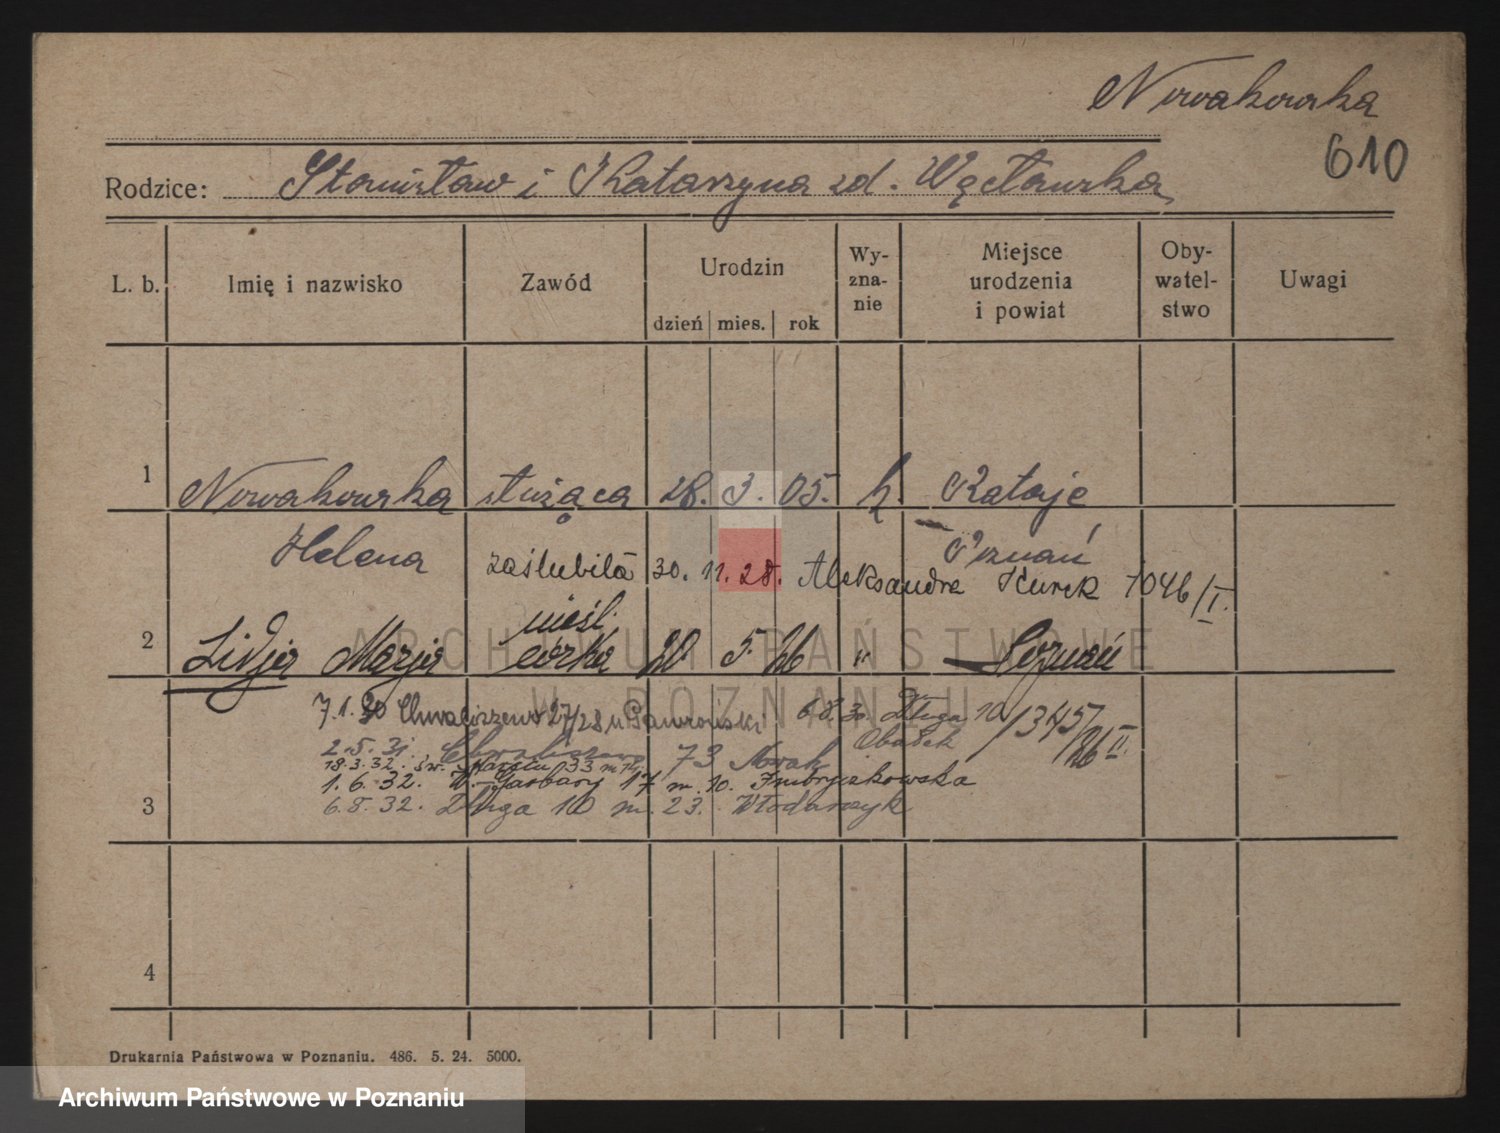 Nowakowska
610
Rodzice: Stanisław i Katarzyna zd. Węcławska
L. b. Imię i nazwisko Zawód Urodzin dzień mies. rok Wy-zna-nie Miejsce urodzenia i powiat Oby-watel-stwo Uwagi
1 Nowakowska służąca 28. 3. 05. k. Rataje
Helena Poznań
zaślubiła 30. 11. 28. Aleksandra Kurek 1046/I.
2 Lidja Marja nieśl. córka 20 5. 26 " Poznań
7.1.30 Chwaliszewo 27/28 u Gawroński 6.8.30 Długa 10 /3457
Obałek /26 II.
2.5.31. Chwaliszewo 73 Nowak
18.3.32. Św. Marcin 33
1.6.32. W. Garbary 17 m. 10. Imbryszkowska
3 6.8.32. Długa 10 m. 23. Włodarczyk
4
Drukarnia Państwowa w Poznaniu. 486. 5. 24. 5000.
ARCHIWUM PAŃSTWOWE
W POZNANIU
Archiwum Państwowe w Poznaniu